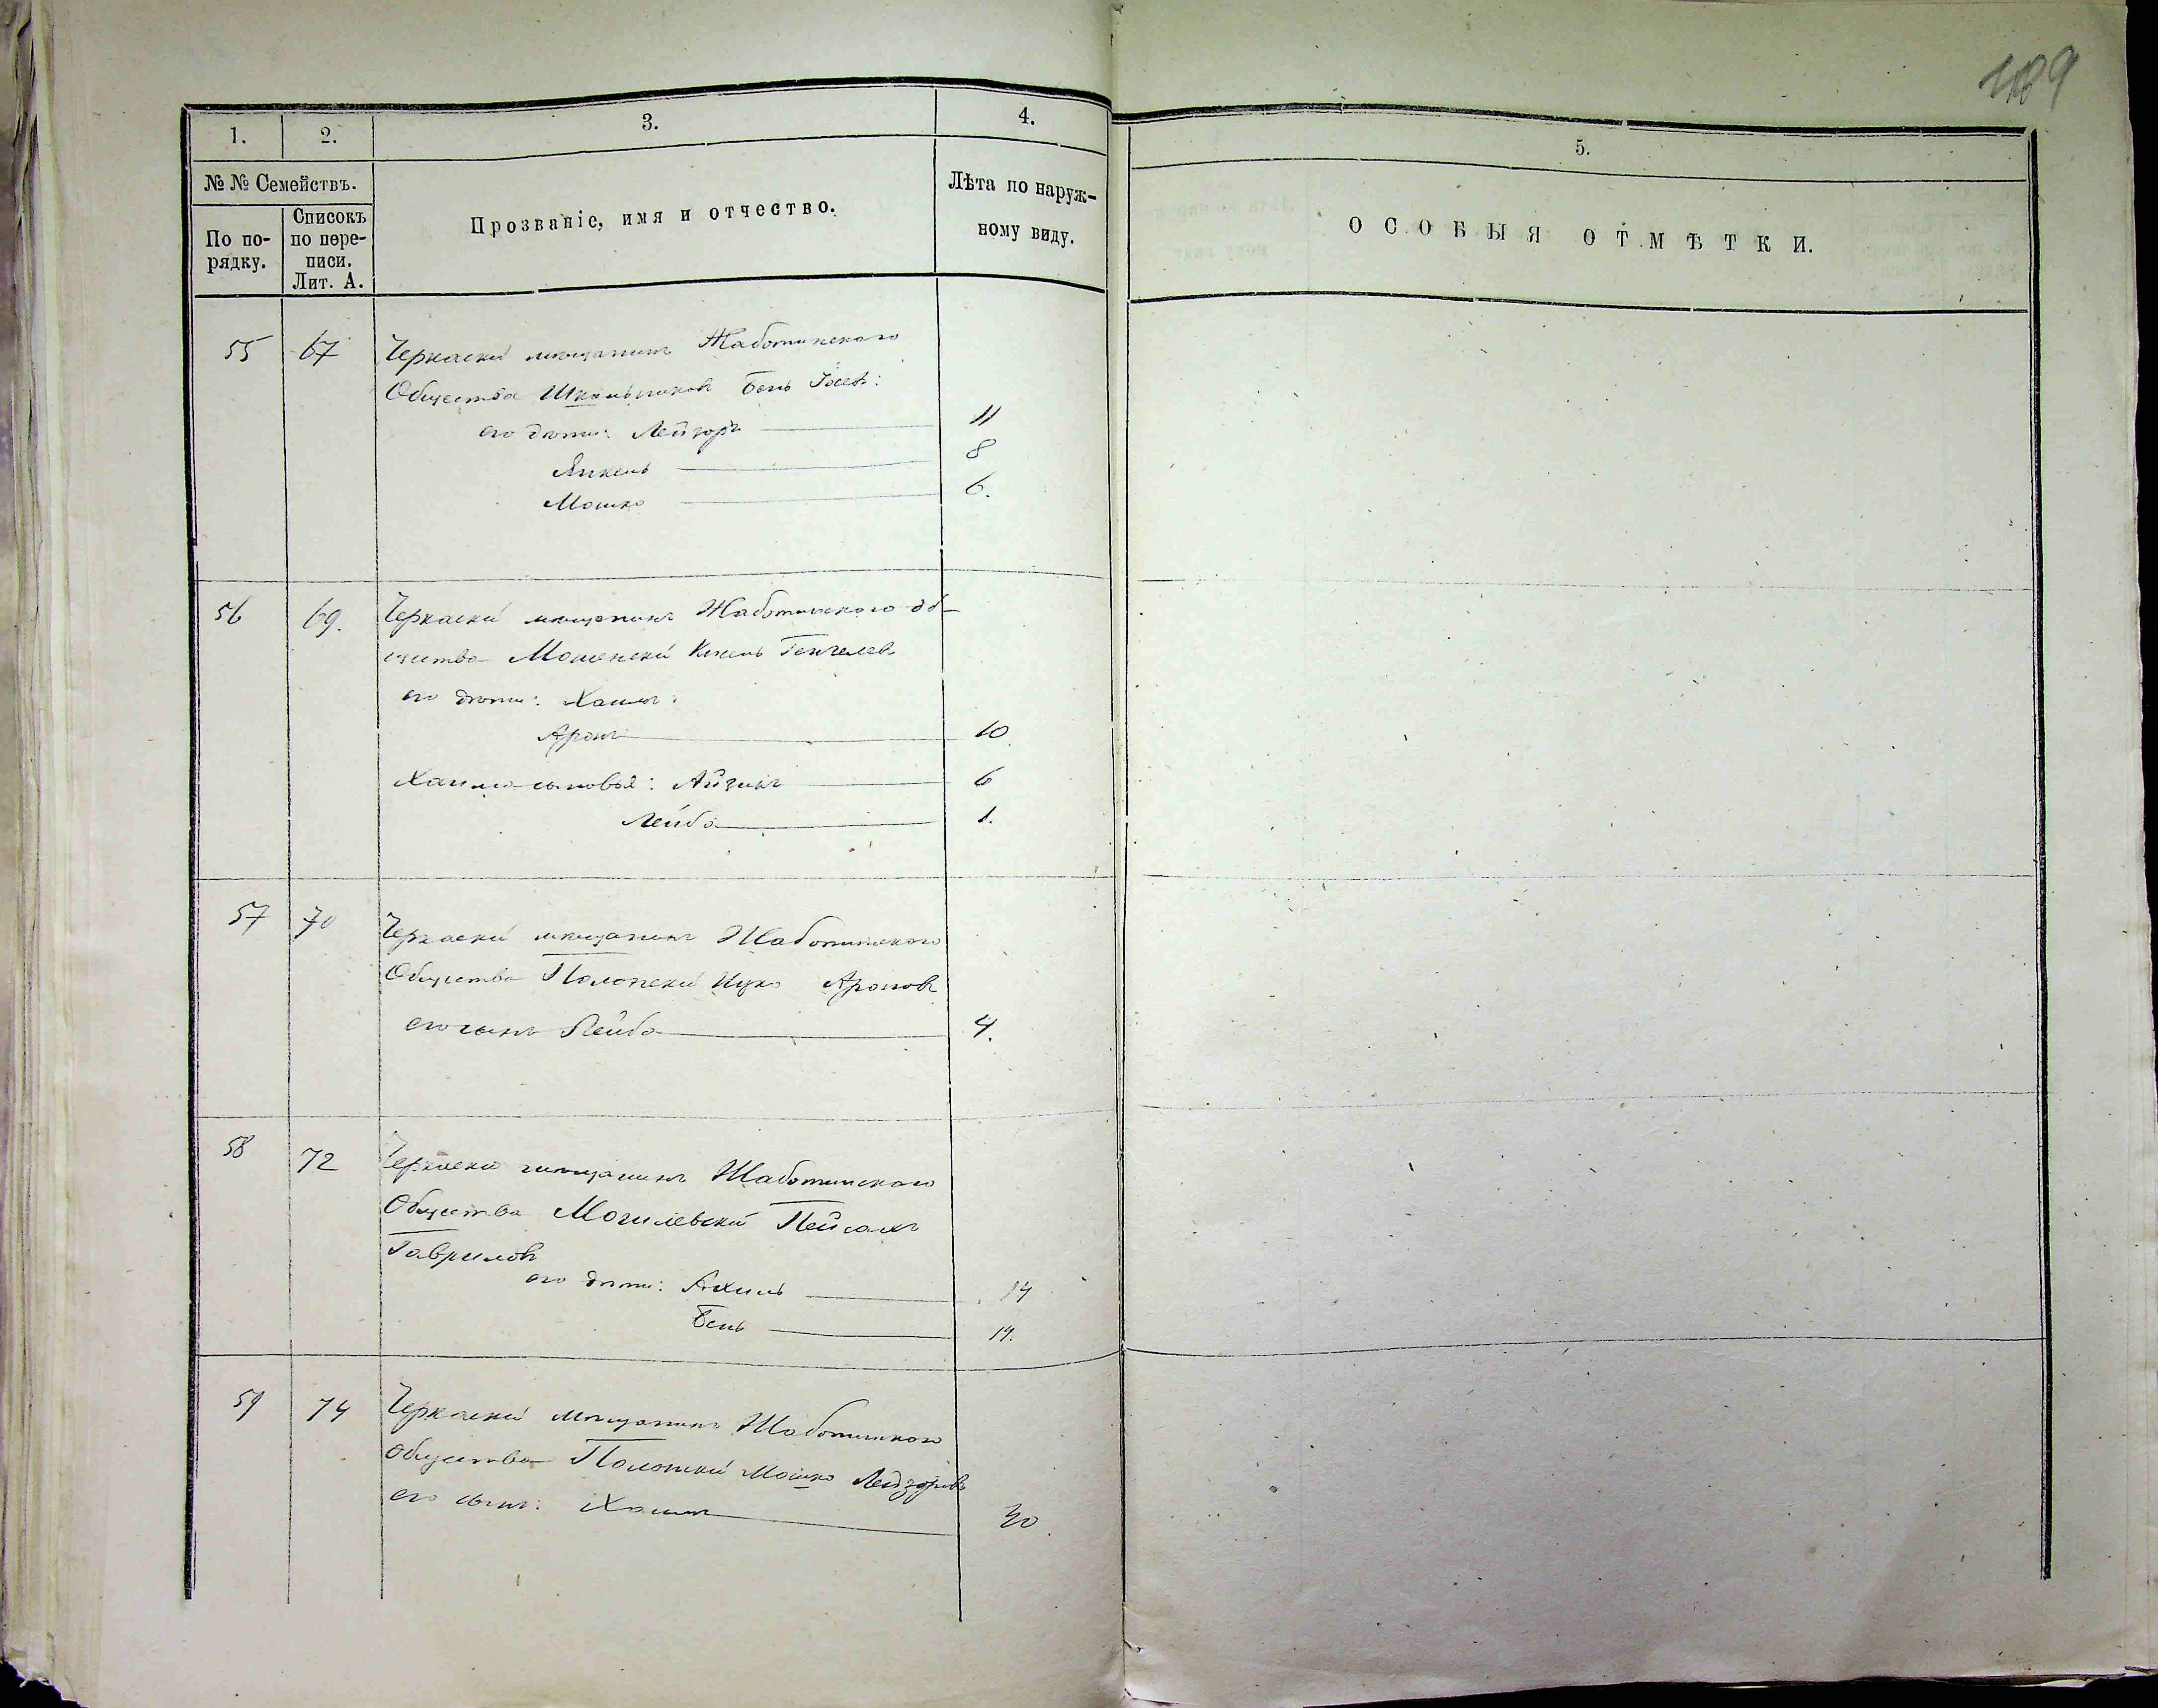 409
1. 2. 3. 4. 5.
№ № Семействъ.
По по-рядку. Списокъ по пере-писи. Лит. А.
Прозваніе, имя и отчество.
Лѣта по наруж-ному виду.
ОСОБЫЯ ОТМѢТКИ.
55 67 Черкаскій мѣщанинъ Жаботинскаго
Общества Школьниковъ Бень Іосевъ:
его дѣти: Лейзоръ 11
Янкель 8
Мошко 6.
56 69. Черкаскій мѣщанинъ Жаботинскаго об-
щества Мошенскій
его дѣти: Хаимъ:
Аронъ 10
Хаима сыновья: Айзикъ 6
Лейба 1.
57 70 Черкаскій мѣщанинъ Жаботинскаго
Общества Полонскій Ицко Ароновъ
его сынъ Лейба 4.
58 72 Черкаскій мѣщанинъ Жаботинскаго
Общества Могилевскій Пейсахъ
Гавриловъ
его дѣти: 14
Бень
59 74 Черкаскій мѣщанинъ Жаботинскаго
Общества Мошко Лейзоровъ
его сынъ: Хаимъ